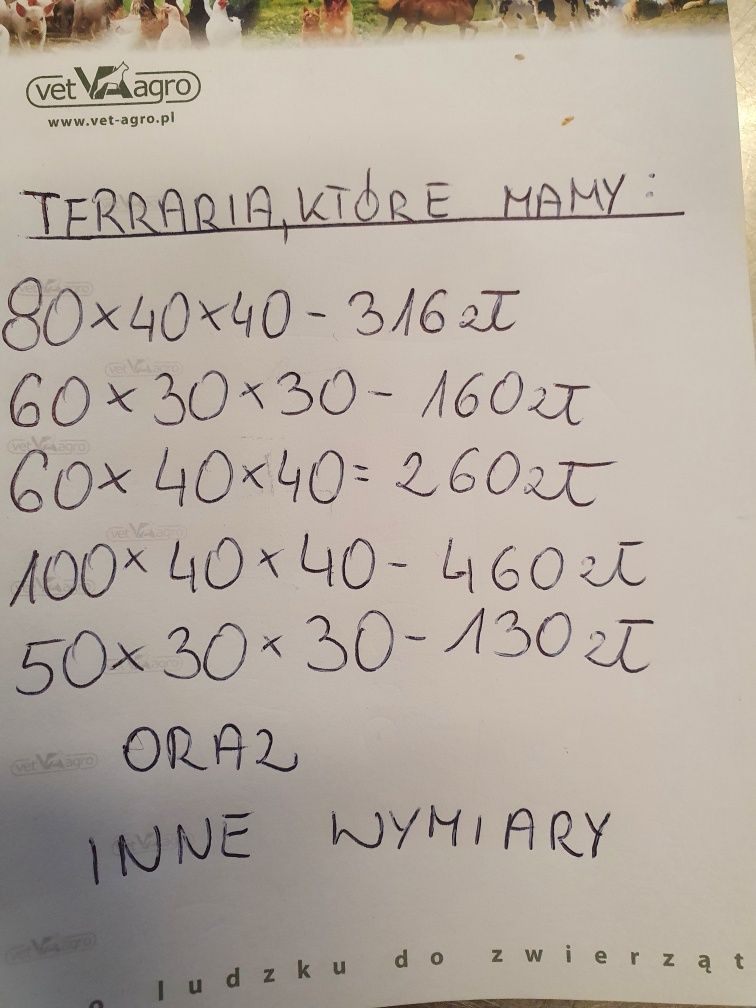 vet VA agro
www.vet-agro.pl
TERRARIA, KTÓRE MAMY:
80×40×40 - 316 zł
60×30×30 - 160 zł
60×40×40 = 260 zł
100×40×40 - 460 zł
50×30×30 - 130 zł
ORAZ
INNE WYMIARY
o ludzku do zwierząt